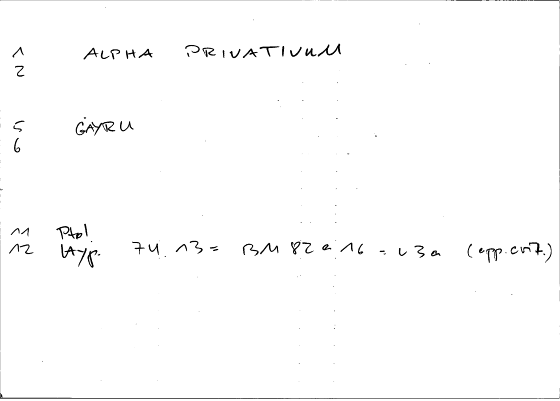 1 ALPHA PRIVATIVUM
2
5 GAYRU
6
11 Ptol.
12 Hyp. 74.13 = BM 82 a 16 = v 3 a (app. crit.)